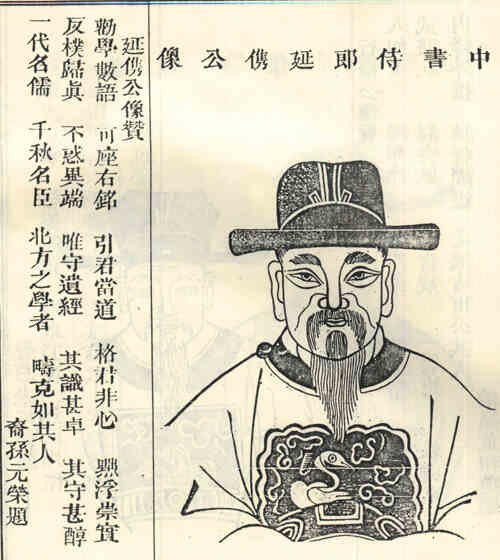 中書侍郎延儁公像
延儁公像贊
勸學數語 可座右銘 引君當道 格君非心 黜浮崇實
反樸歸眞 不惑異端 唯守遺經 其識甚卓 其守甚醇
一代名儒 千秋名臣 北方之學者 疇克如其人
裔孫元榮題